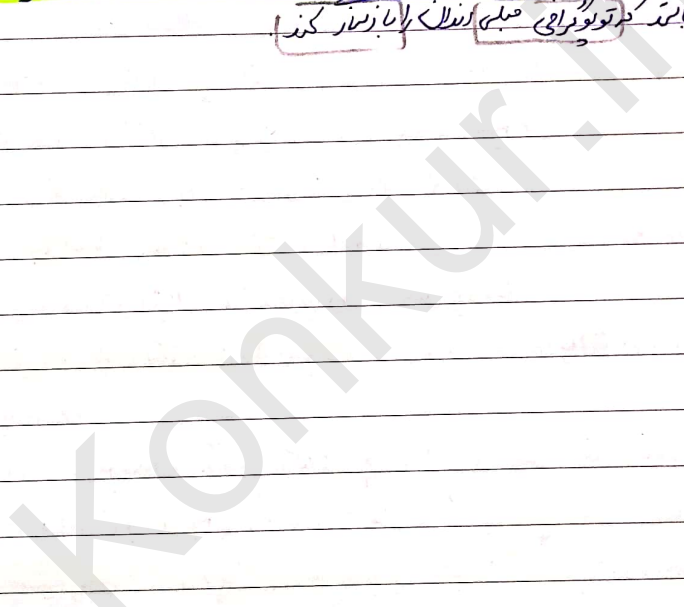 باشد که توپوگرافی قبلی دندان را بازسازی کند.
Konkur.in